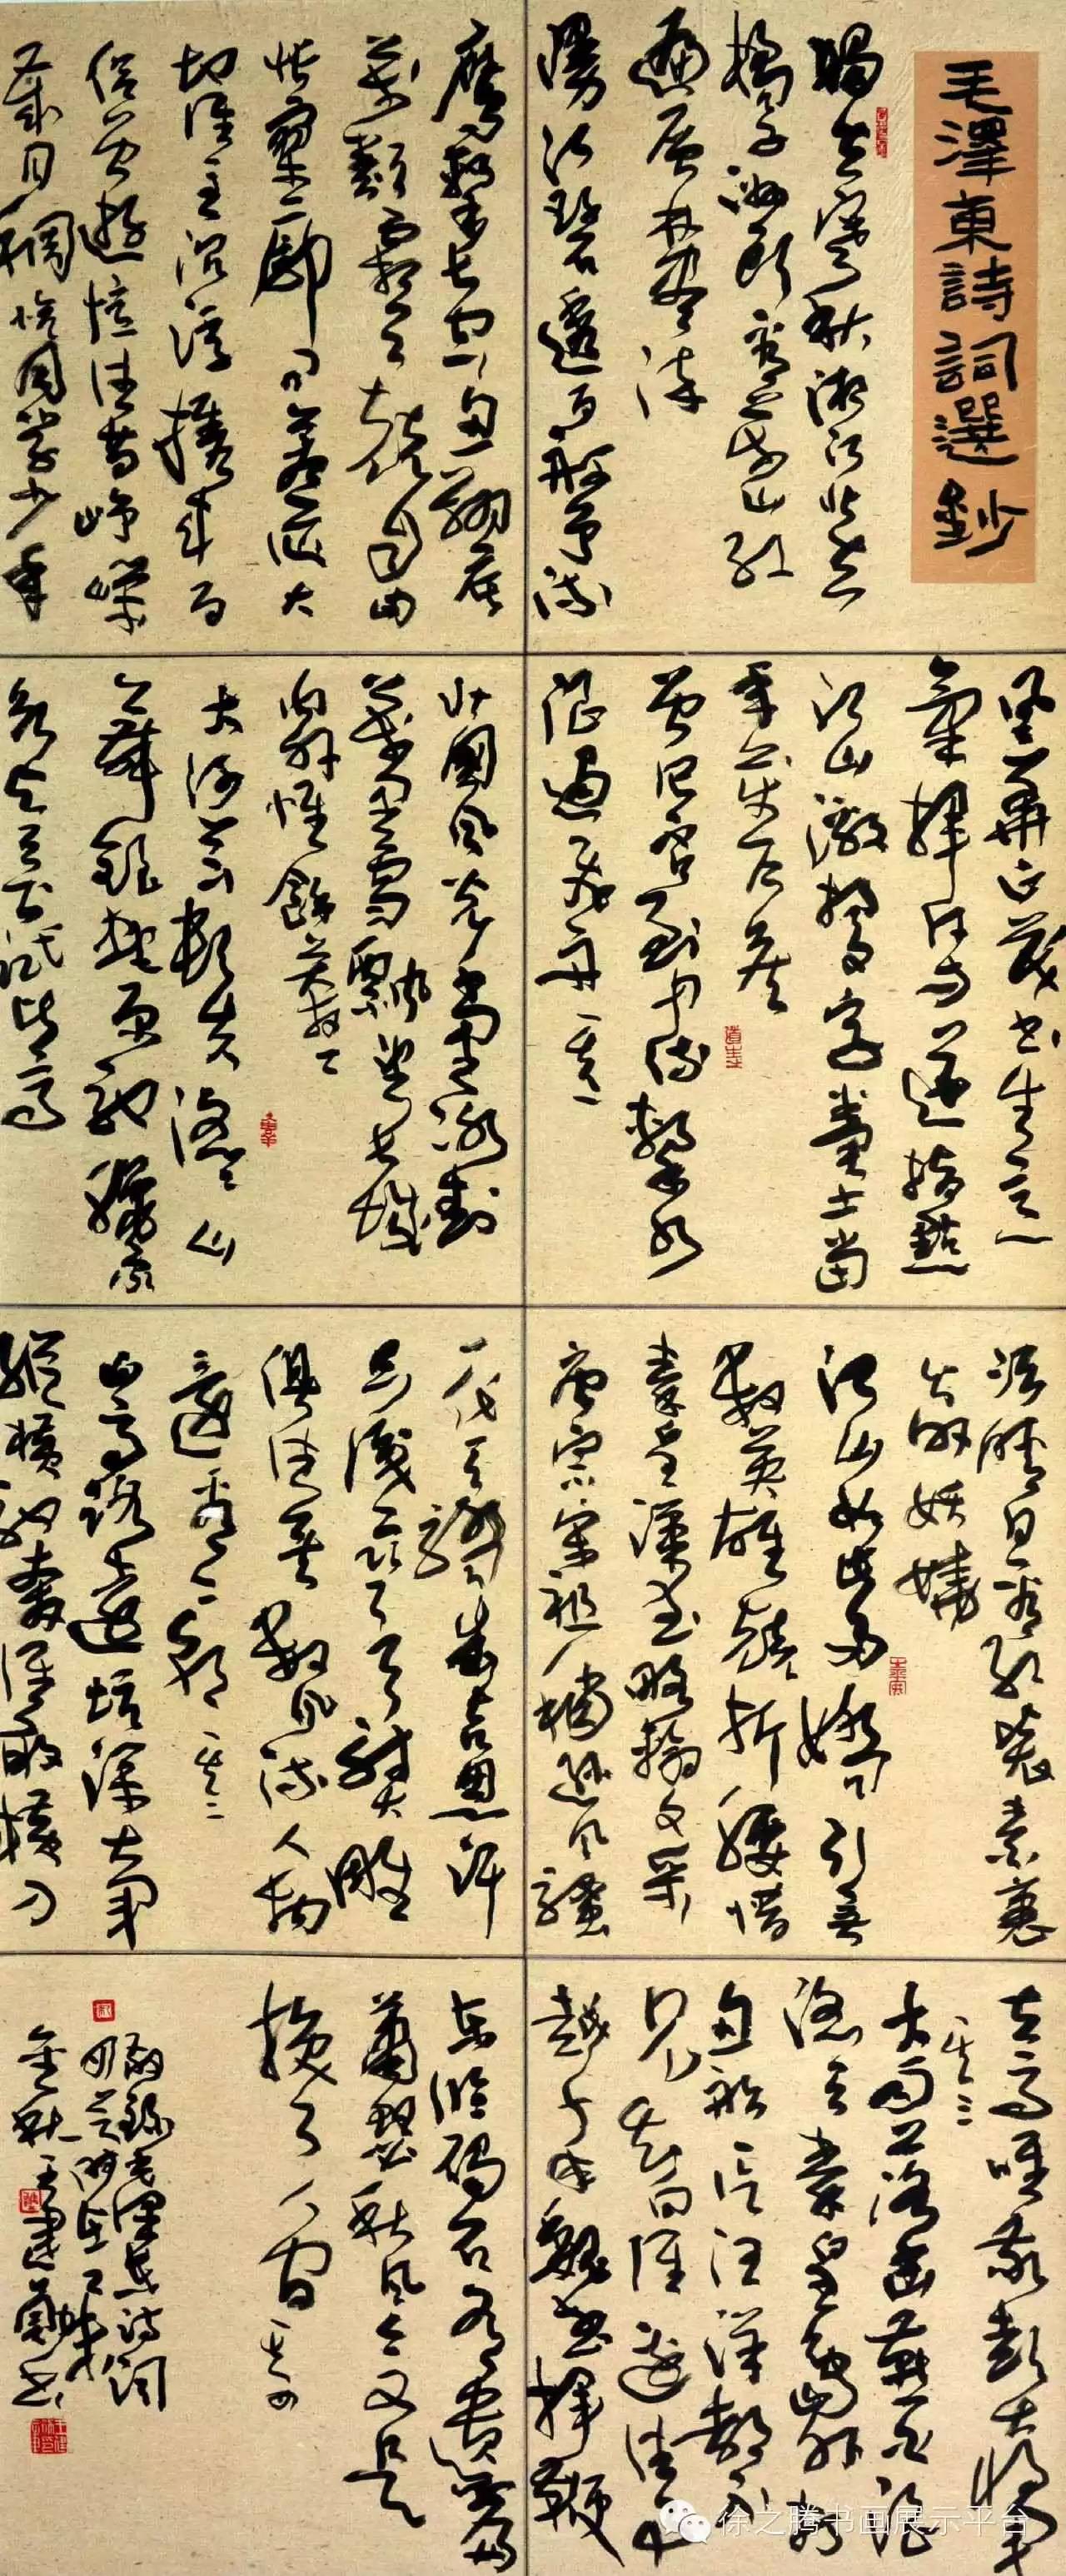 毛澤東詩詞選鈔
獨立寒秋湘江北去
橘子洲頭看萬山紅
遍層林盡染
漫江碧透百舸爭流
鷹擊長空魚翔淺底
萬類霜天競自由
悵寥廓問蒼茫大
地誰主沉浮攜來百
侶曾遊憶往昔崢嶸
歲月稠恰同學少年
風華正茂書生意
氣揮斥方遒指點
江山激揚文字糞土當
年萬戶侯
曾記否到中流擊水
浪遏飛舟 其一
北國風光千里冰封
萬里雪飄望長城
內外惟餘莽莽
大河上下頓失滔滔山
舞銀蛇原馳蠟象
欲與天公試比高
須晴日看紅裝素裹
分外妖嬈
江山如此多嬌引無
數英雄競折腰惜
秦皇漢武略輸文采
唐宗宋祖稍遜風騷
一代天驕成吉思汗
只識彎弓射大雕
俱往矣數風流人物
還看今朝 其二
山高路遠坑深大軍
縱橫馳奔誰敢橫刀
立馬唯我彭大將軍
其三
大雨落幽燕白浪
滔天秦皇島外打
魚船一片汪洋都不
見知向誰邊往事
越千年魏武揮鞭
東臨碣石有遺篇
蕭瑟秋風今又是
換了人間 其四
敬錄毛澤東詩詞
金秋王建
徐之腾书画展示平台